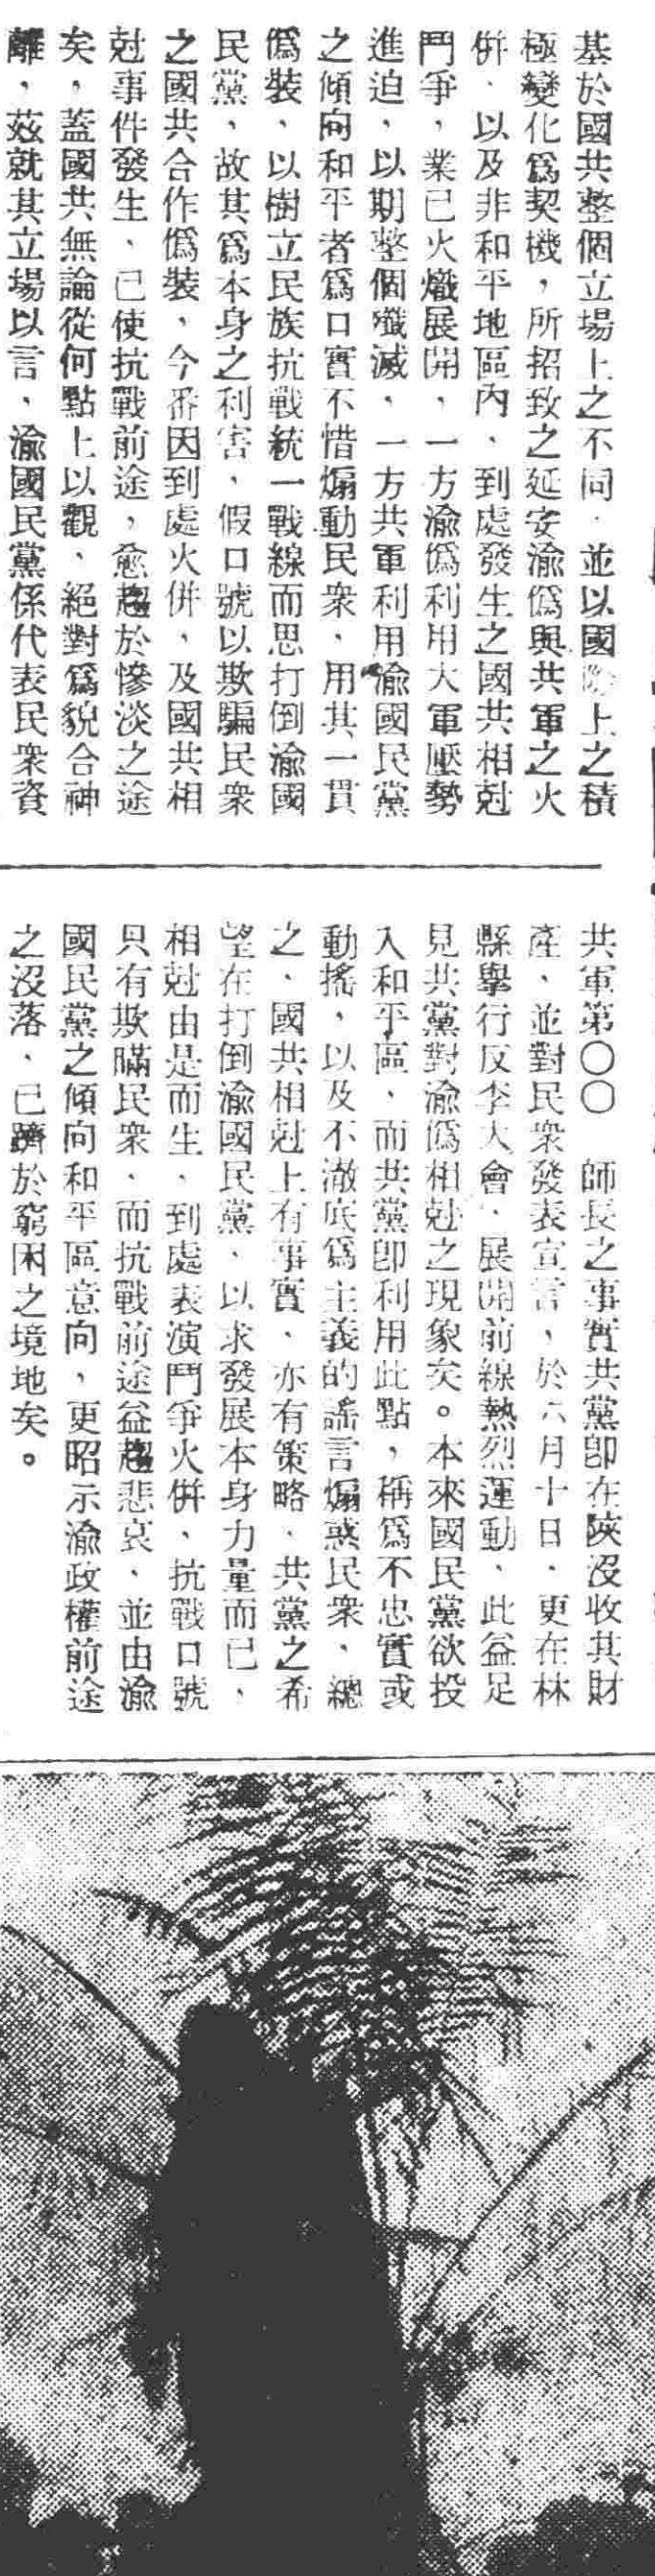 基於國共整個立場上之不同．並以國際上之積
極變化爲契機，所招致之延安渝僞與共軍之火
併．以及非和平地區內、到處發生之國共相尅
鬥爭，業已火熾展開、一方渝僞利用大軍壓勢
進迫、以期整個殲滅、一方共軍利用渝國民黨
之傾向和平者爲口實不惜煽動民衆、用其一貫
僞裝、以樹立民族抗戰統一戰線而思打倒渝國
民黨、故其爲本身之利害，假口號以欺騙民衆
之國共合作僞裝、今番因到處火併、及國共相
尅事件發生、已使抗戰前途，愈趨於慘淡之途
矣，蓋國共無論從何點上以觀、絕對爲貌合神
離，茲就其立場以言、渝國民黨係代表民衆資
共軍第〇〇　師長之事實共黨卽在陝沒收其財
產、並對民衆發表宣言，於六月十日．更在林
縣舉行反李大會、展開前線熱烈運動、此益足
見共黨對渝僞相尅之現象矣。本來國民黨欲投
入和平區、而共黨卽利用此點，稱爲不忠實或
動搖，以及不澈底爲主義的謠言煽惑民衆、總
之、國共相尅上有事實、亦有策略、共黨之希
望在打倒渝國民黨、以求發展本身力量而已、
相尅由是而生、到處表演鬥爭火併、抗戰口號
只有欺瞞民衆、而抗戰前途益趨悲哀、並由渝
國民黨之傾向和平區意向，更昭示渝政權前途
之沒落、已躋於窮困之境地矣。